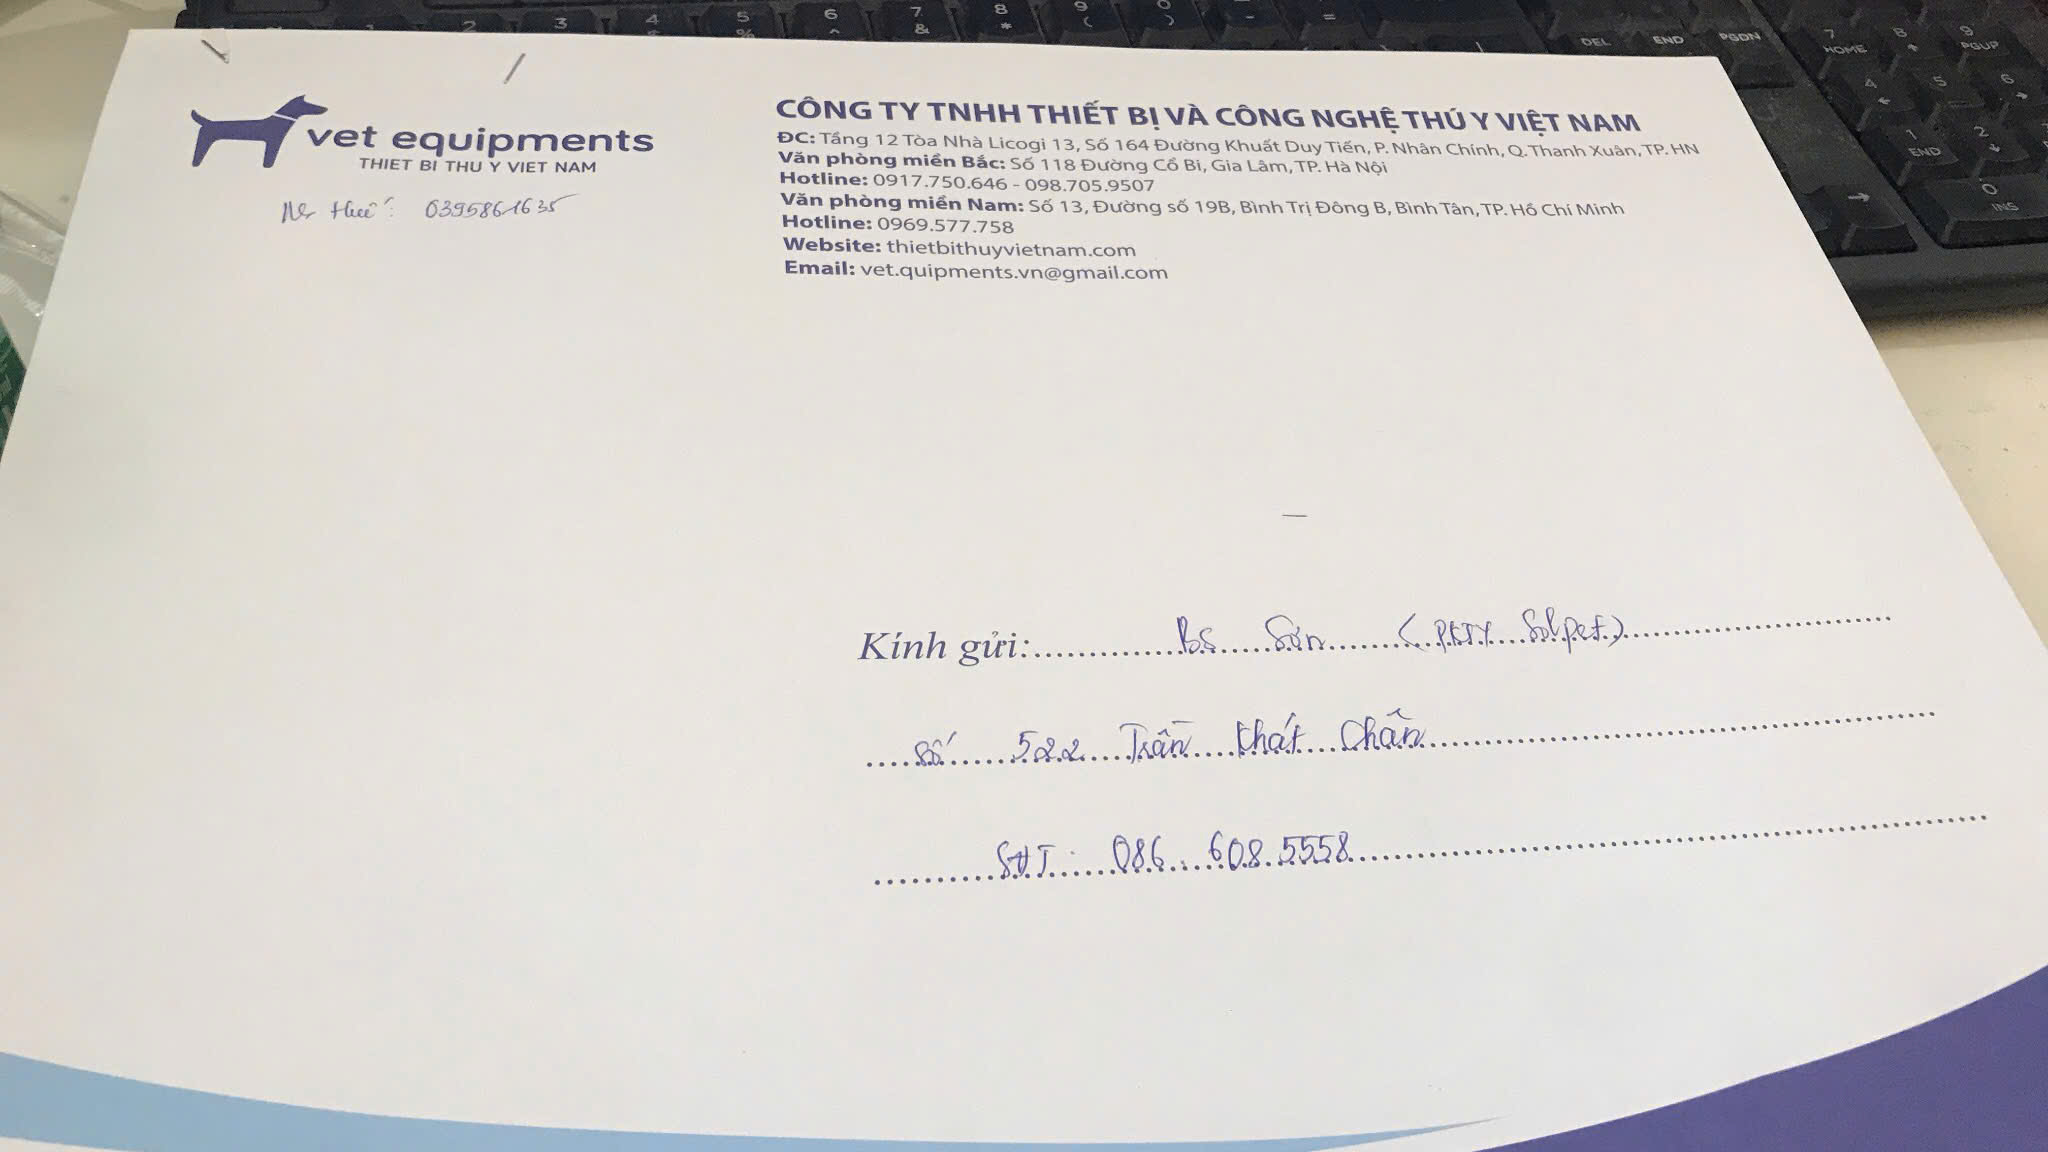 vet equipments
THIET BI THU Y VIET NAM
Mr Huế: 0395861635
CÔNG TY TNHH THIẾT BỊ VÀ CÔNG NGHỆ THÚ Y VIỆT NAM
ĐC: Tầng 12 Tòa Nhà Licogi 13, Số 164 Đường Khuất Duy Tiến, P. Nhân Chính, Q. Thanh Xuân, TP. HN
Văn phòng miền Bắc: Số 118 Đường Cổ Bi, Gia Lâm, TP. Hà Nội
Hotline: 0917.750.646 - 098.705.9507
Văn phòng miền Nam: Số 13, Đường số 19B, Bình Trị Đông B, Bình Tân, TP. Hồ Chí Minh
Hotline: 0969.577.758
Website: thietbithuyvietnam.com
Email: vet.quipments.vn@gmail.com
Kính gửi: BS Sơn (PKTY Solpet)
Số 522 Trần Khát Chân
SĐT: 086 608 5558